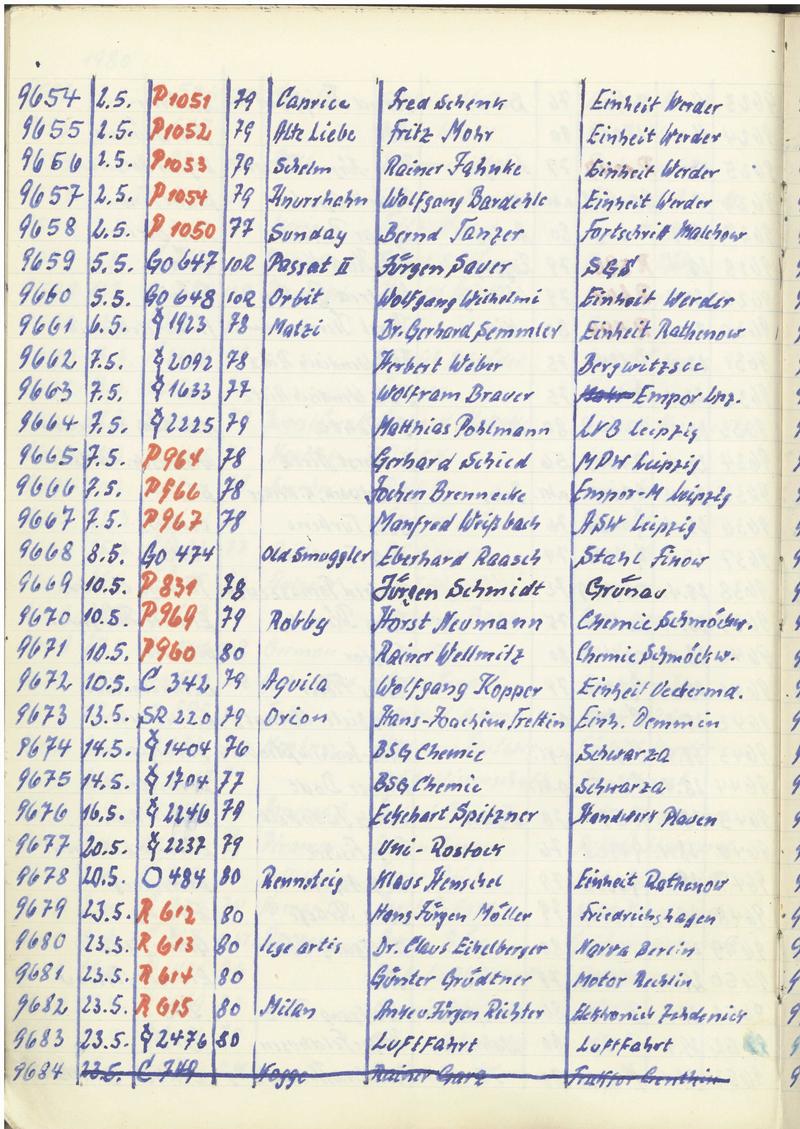 1980
9654 2.5. P 1051 79 Caprice Fred Schenk Einheit Werder
9655 2.5. P 1052 79 Alte Liebe Fritz Mohr Einheit Werder
9656 2.5. P 1053 79 Schelm Rainer Jahnke Einheit Werder
9657 2.5. P 1054 79 Knurrhahn Wolfgang Bardehle Einheit Werder
9658 2.5. P 1050 77 Sunday Bernd Tanzer Fortschritt Malchow
9659 5.5. GO 647 10R Passat II Jürgen Sauer SGS
9660 5.5. GO 648 10R Orbit Wolfgang Wilhelmi Einheit Werder
9661 6.5. 1923 78 Matzi Dr. Gerhard Semmler Einheit Rathenow
9662 7.5. 2092 78 Herbert Weber Bergwitzsee
9663 7.5. 1633 77 Wolfram Brauer Empor Lpz.
9664 7.5. 2225 79 Matthias Pohlmann LVB Leipzig
9665 7.5. P 964 78 Gerhard Schied MDW Leipzig
9666 7.5. P 966 78 Jochen Brennecke Empor-M Leipzig
9667 7.5. P 967 78 Manfred Weißbach ASW Leipzig
9668 8.5. GO 474 Old Smuggler Eberhard Raasch Stahl Finow
9669 10.5. P 831 78 Jürgen Schmidt Grünau
9670 10.5. P 969 79 Robby Horst Neumann Chemie Schmöckw.
9671 10.5. P 960 80 Rainer Wellmitz Chemie Schmöckw.
9672 10.5. C 342 79 Aquila Wolfgang Kopper Einheit Ueckermd.
9673 13.5. SR 220 79 Orion Hans-Joachim Trettin Einh. Demmin
9674 14.5. 1404 76 BSG Chemie Schwarza
9675 14.5. 1704 77 BSG Chemie Schwarza
9676 16.5. 2246 79 Eckhart Spitzner Handwerk Plauen
9677 20.5. 2237 79 Uni-Rostock
9678 20.5. O 484 80 Rennsteig Klaus Henschel Einheit Rathenow
9679 23.5. R 612 80 Hans Jürgen Möller Friedrichshagen
9680 23.5. R 613 80 lege artis Dr. Claus Eichelberger Narva Berlin
9681 23.5. R 614 80 Günter Grüdtner Motor Rechlin
9682 23.5. R 615 80 Milan Jürgen Richter Elektronik Zehdenick
9683 23.5. 2476 80 Luftfahrt Luftfahrt
9684 23.5. C 749 Kogge Rainer Garz Traktor Genthin